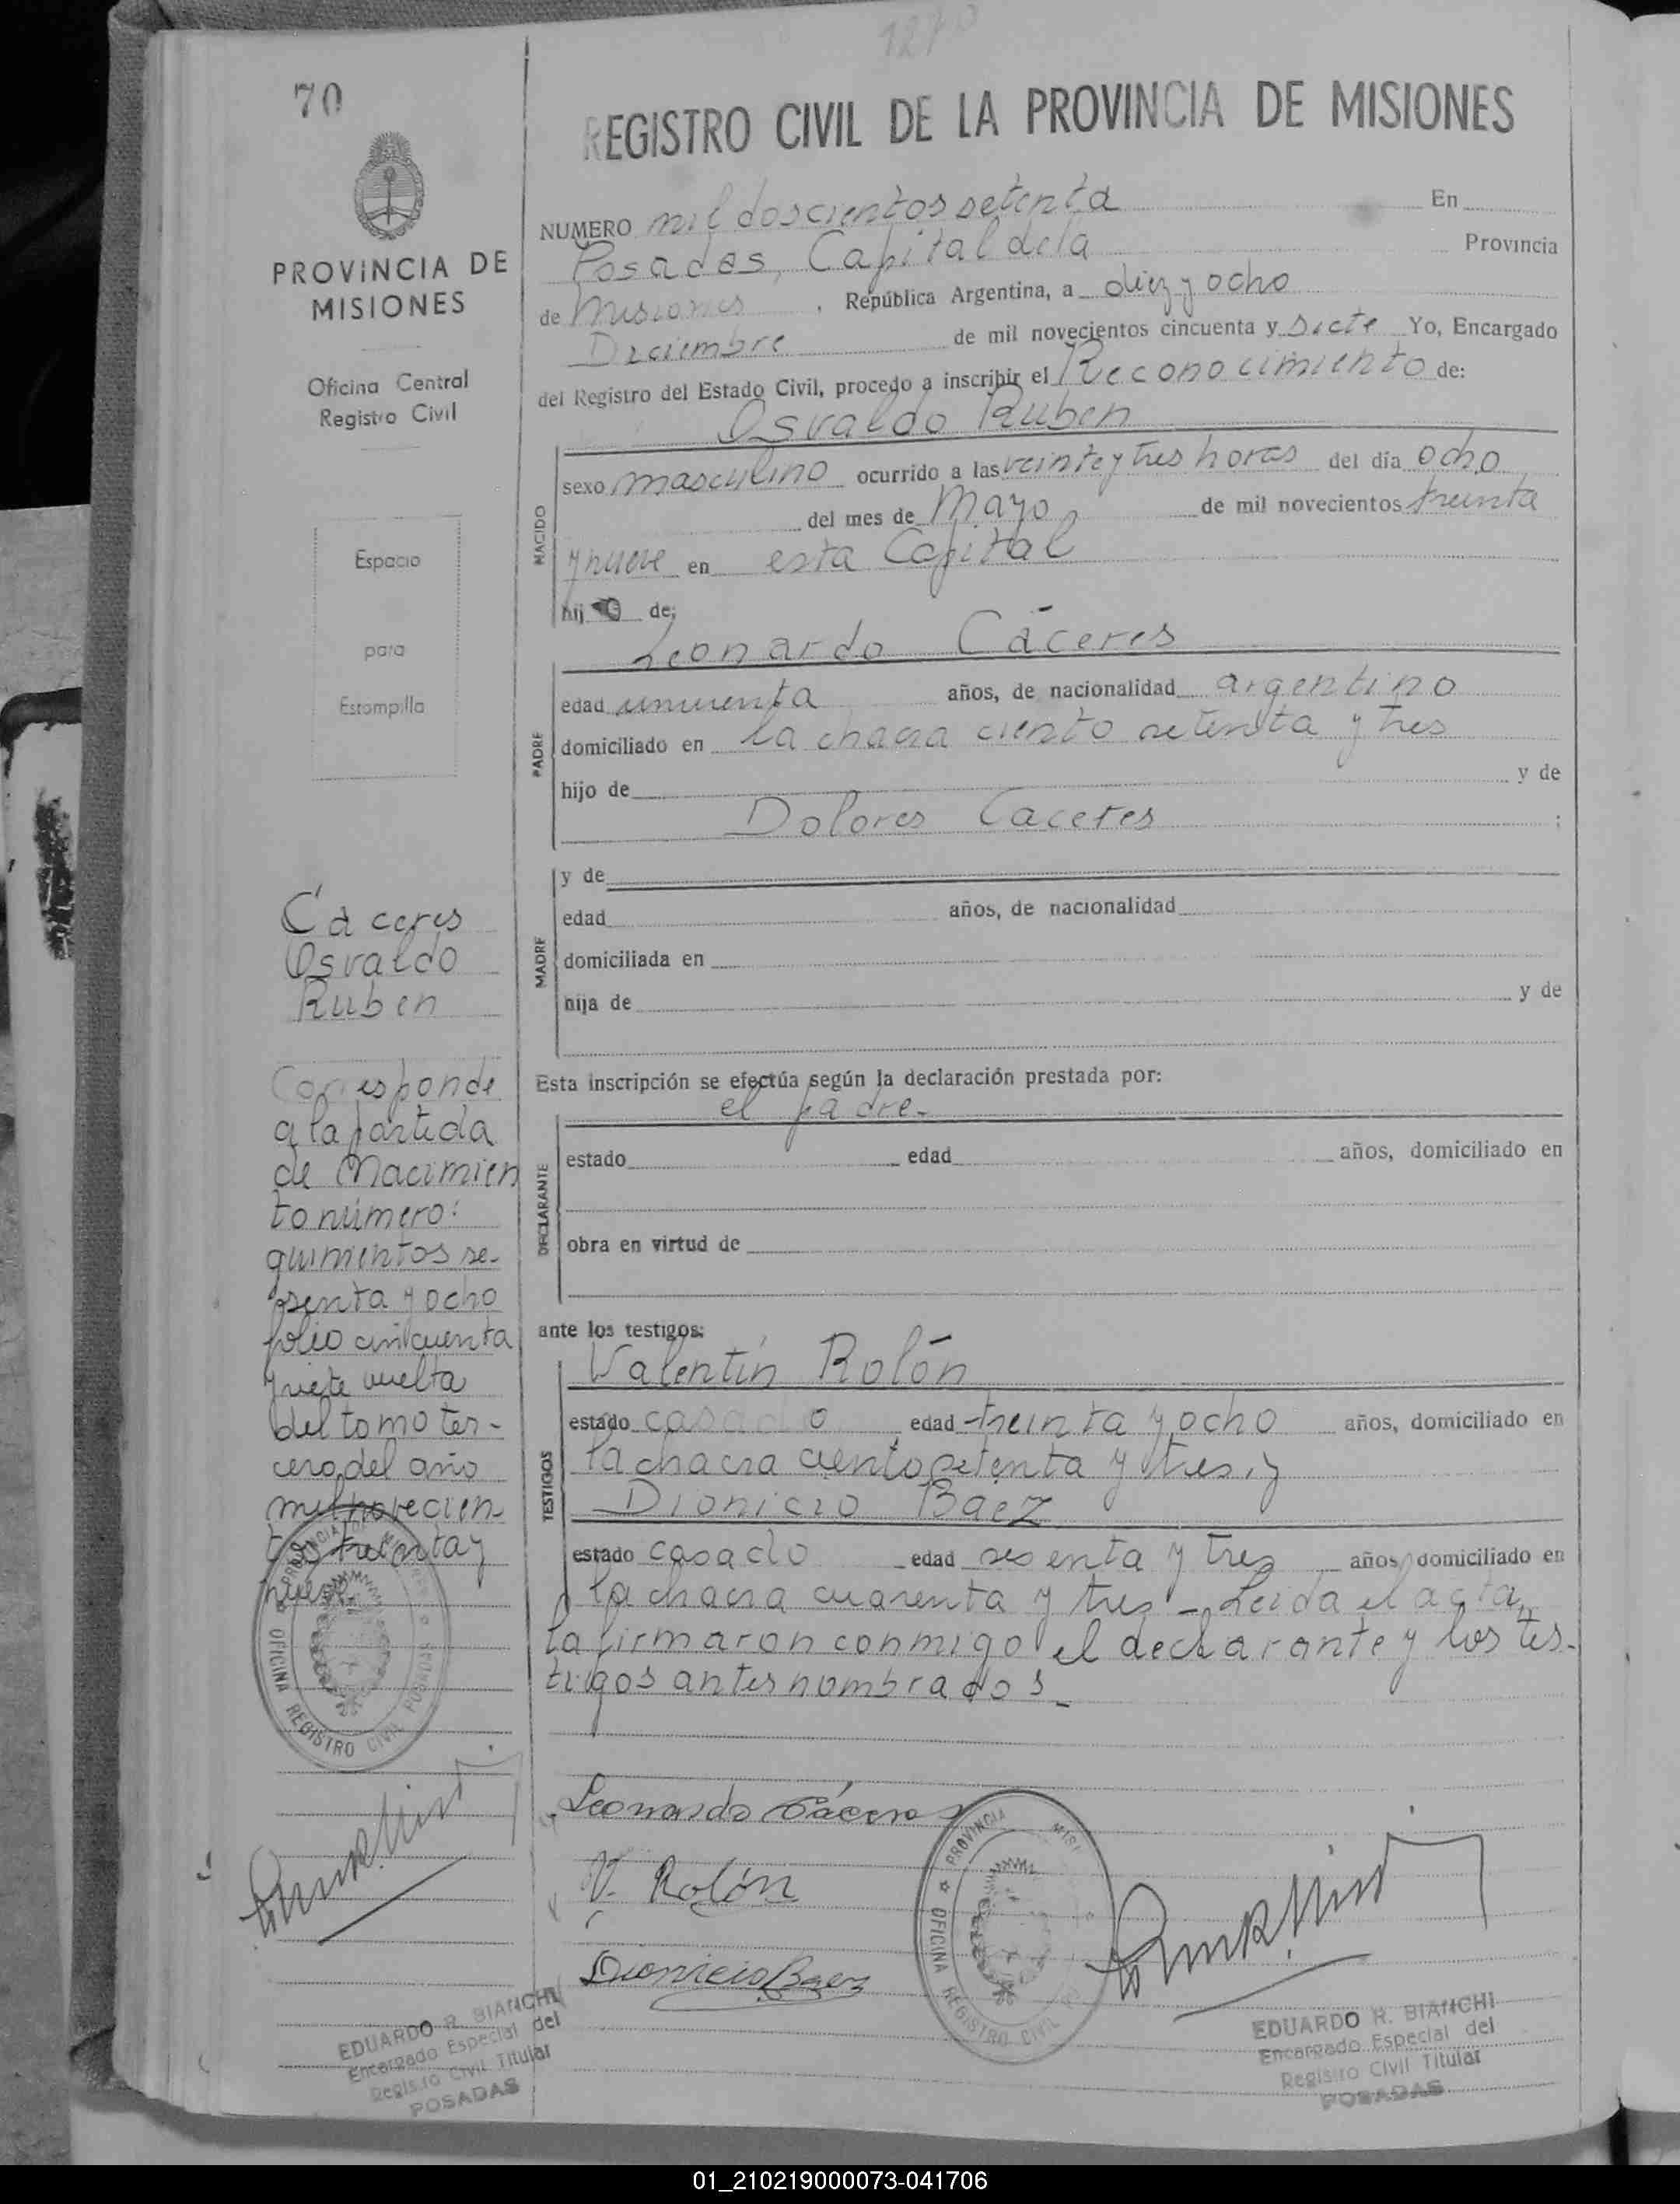 1270
70
REGISTRO CIVIL DE LA PROVINCIA DE MISIONES
PROVINCIA DE
MISIONES
Oficina Central
Registro Civil
Espacio
para
Estampilla
NUMERO mil doscientos setenta En
Posadas, Capital de la Provincia
de Misiones, República Argentina, a diez y ocho
Diciembre de mil novecientos cincuenta y siete Yo, Encargado
del Registro del Estado Civil, procedo a inscribir el Reconocimiento de:
Osvaldo Ruben
NACIDO
sexo masculino ocurrido a las veinte y tres horas del día ocho
del mes de Mayo de mil novecientos treinta
y nueve en esta Capital
hijo de;
Leonardo Cáceres
PADRE
edad cincuenta años, de nacionalidad argentino
domiciliado en la chacra ciento setenta y tres
hijo de y de
Dolores Caceres ;
MADRE
y de
edad años, de nacionalidad
domiciliada en
hija de y de
Esta inscripción se efectúa según la declaración prestada por:
el padre.
DECLARANTE
estado edad años, domiciliado en
obra en virtud de
ante los testigos:
Valentín Rolón
TESTIGOS
estado casado edad treinta y ocho años, domiciliado en
la chacra ciento setenta y tres, y
Dionicio Baez
estado casado edad sesenta y tres años, domiciliado en
la chacra cuarenta y tres - Leida el acta,
la firmaron conmigo el declarante y los tes-
tigos antes nombrados -
Cáceres
Osvaldo
Ruben
Corresponde
a la partida
de Nacimien
to número:
quinientos se-
senta y ocho
folio cincuenta
y siete vuelta
del tomo ter-
cero, del año
mil novecien
tos treinta y
nueve
PROVINCIA DE MISIONES
OFICINA REGISTRO CIVIL POSADAS
Leonardo Cáceres
V. Rolón
Dionicio Baez
PROVINCIA MISI
OFICINA REGISTRO CIVIL
EDUARDO R. BIANCHI
Encargado Especial del
Registro Civil Titular
POSADAS
EDUARDO R. BIANCHI
Encargado Especial del
Registro Civil Titular
POSADAS
01_210219000073-041706